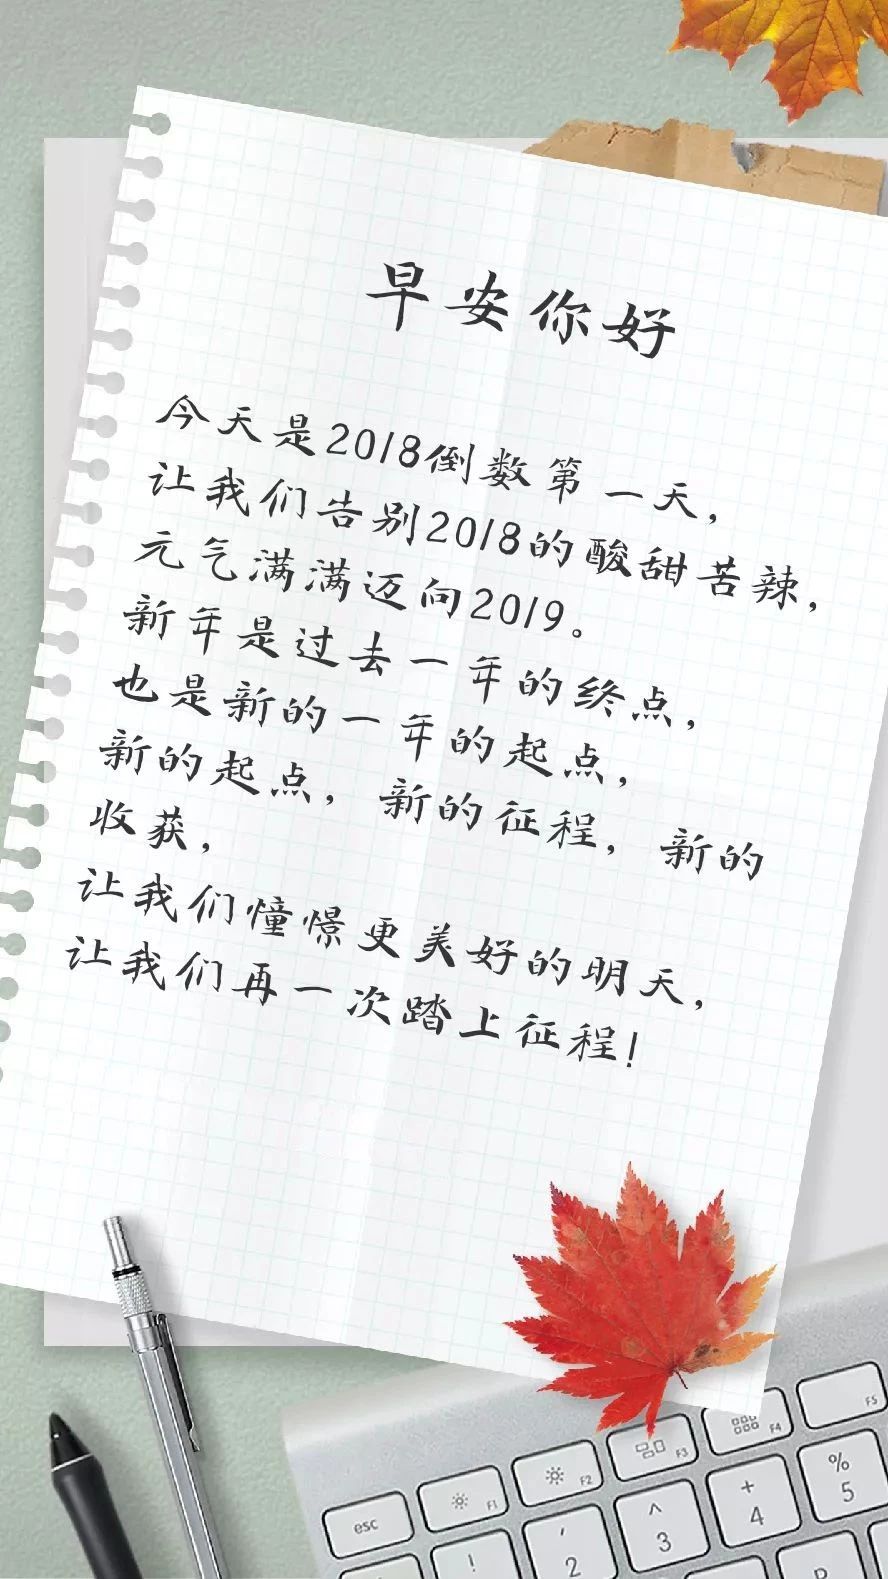 早安你好
今天是2018倒数第一天，
让我们告别2018的酸甜苦辣，
元气满满迈向2019。
新年是过去一年的终点，
也是新的一年的起点，
新的起点，新的征程，新的
收获，
让我们憧憬更美好的明天，
让我们再一次踏上征程！
esc
F1
F2
F3
F4
F5
!
'
2
^
3
+
4
%
5